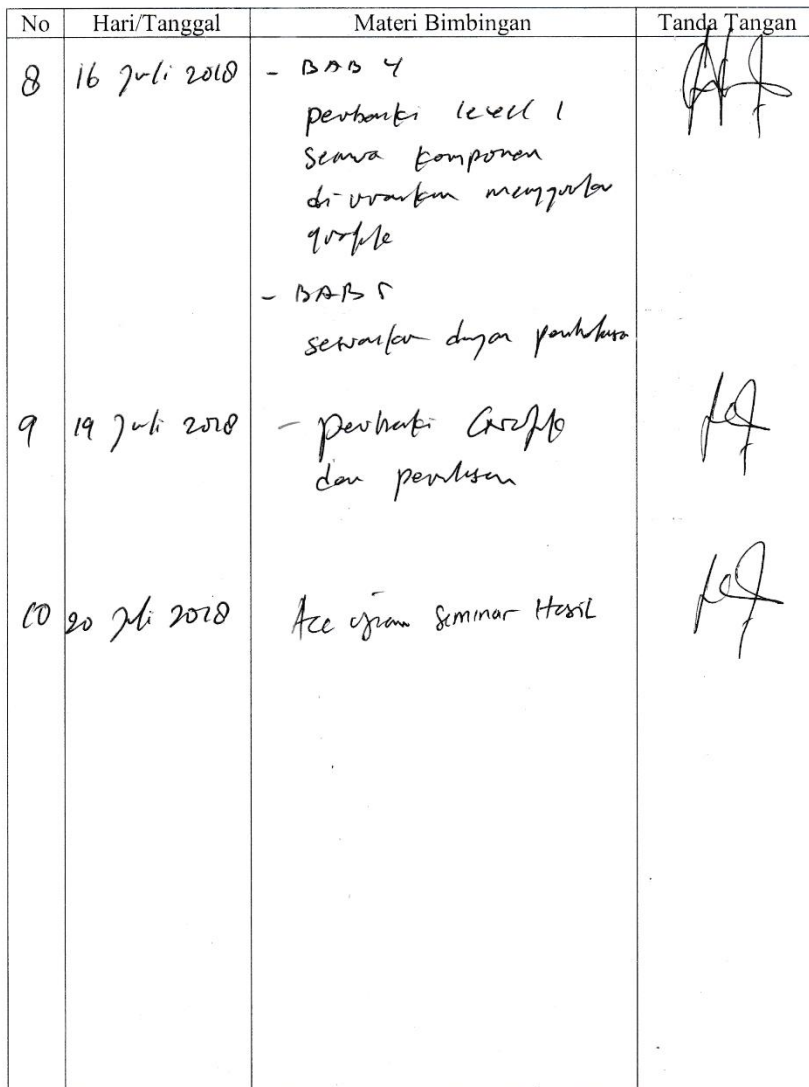 No Hari/Tanggal Materi Bimbingan Tanda Tangan
8 16 Juli 2018 - BAB 4
perbaiki level 1
semua komponen
di uraikan
- BAB 5
sesuaikan dengan
9 19 Juli 2018 - perbaiki
dan penulisan
10 20 Juli 2018 Acc ujian Seminar Hasil